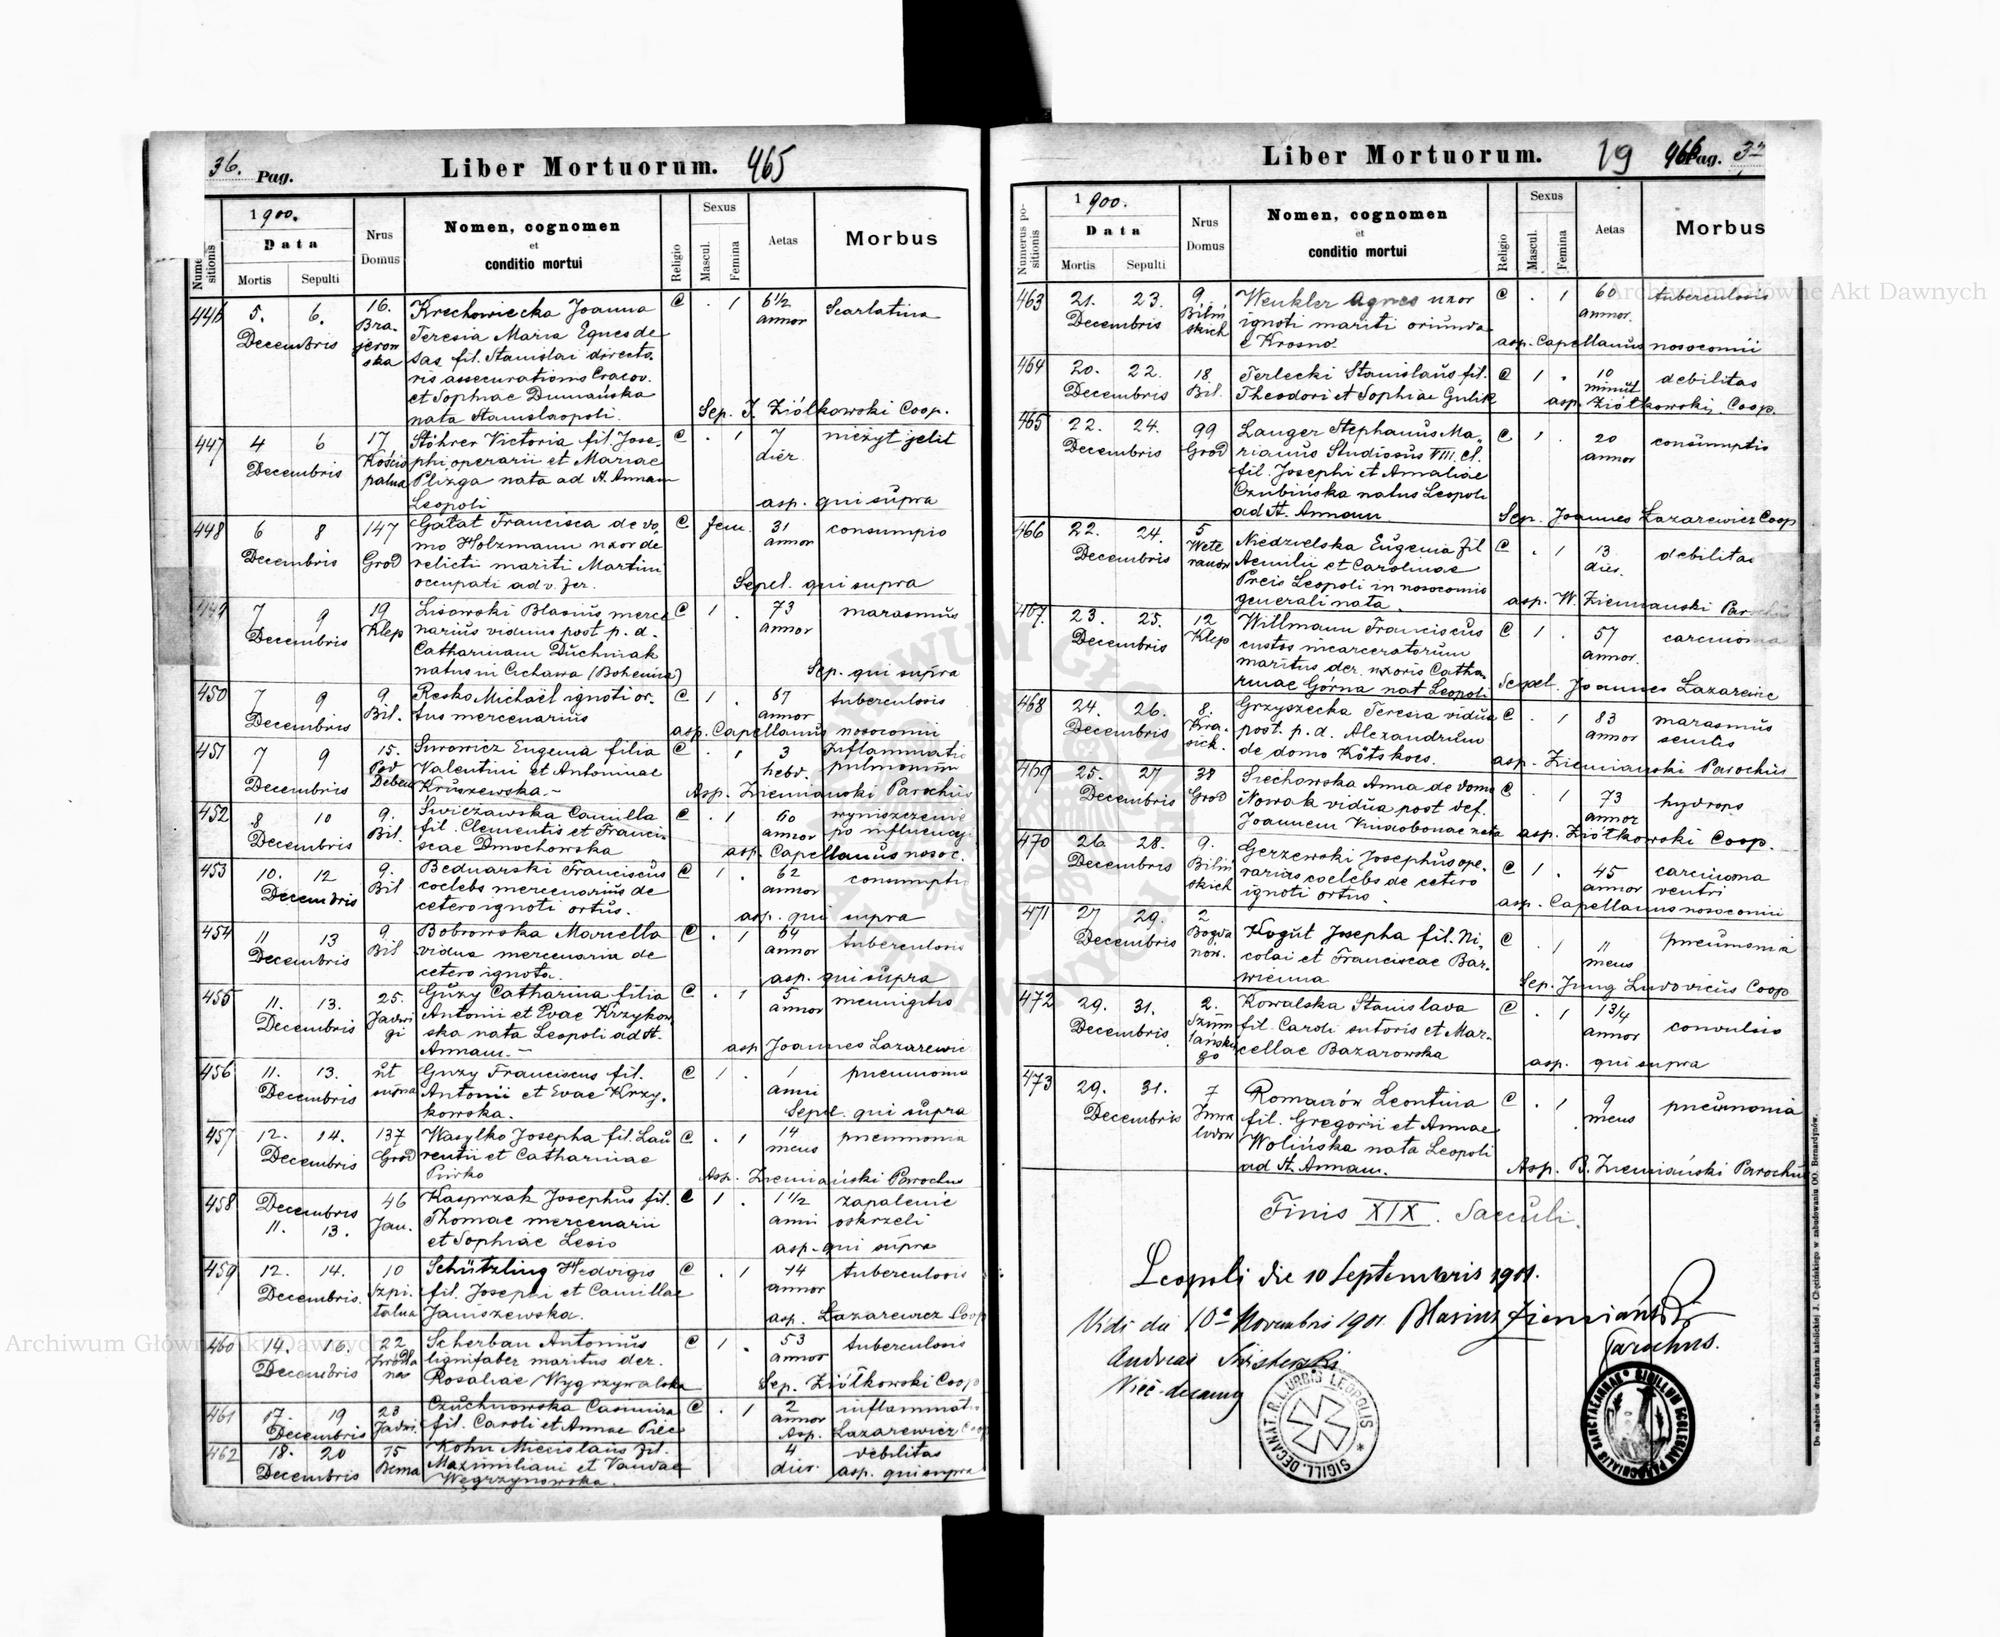 36. Pag.
Liber Mortuorum. 465
1900.
Data
Mortis Sepulti
Nrus
Domus
Nomen, cognomen
et
conditio mortui
Religio
Sexus
Mascul.
Femina
Aetas
Morbus
446 5. 6. Decembris 16.
Krechowiecka Joanna
Teresia Maria Eques de
fil. Stanislai directo
ris assecurationis Cracov.
et Sophiae Dumańska
nata Stanislaopoli.
C . 1 6½ annor Scarlatina
Sep. J. Ziółkowski Coop.
447 4 6 Decembris 17
Stöhrer Victoria fil. Jose-
phi operarii et Mariae
Plizga nata ad St. Annam
Leopoli
C . 1 7 dier nieżyt jelit
asp. qui supra
448 6 8 Decembris 147 Grod
Gałat Francisca de do
mo Holzmann uxor de
relicti mariti Martini
occupati ad v. fer.
C fem 31 annor consumpio
Sepel. qui supra
449 7 9 Decembris 19 Klep
Lisowski Blasius merce
narius viduus post p. d.
Catharinam Duchniak
natus in Cichawa (Bohemia)
C 1 . 73 annor marasmus
Sep. qui supra
450 7 9 Decembris 9. Bil.
Reska Michaël ignoti or-
tus mercenarius
C 1 . 67 annor tuberculosis
asp. Capellanus nosocomii
451 7 9 Decembris 15. Pod Debem
Surowicz Eugenia filia
Valentini et Antoninae
Kruszewska.-
C . 1 3 hebd. Inflammatio
pulmonum
Asp. Ziemianski Parochus
452 8 10 Decembris 9. Bil.
Swiczawska Camilla
fil. Clementis et Francis
scae Dmochowska
C . 1 60 annor wyniszczenie
po influency
asp. Capellanus nosoc.
453 10. 12 Decembris 9. Bil
Bednarski Franciscus
coelebs mercenarius de
cetero ignoti ortus.
C 1 . 62 annor consumptio
asp. qui supra
454 11 13 Decembris 9. Bil
Bobrowska Marcella
vidua mercenaria de
cetero ignota.
C . 1 64 annor tuberculosis
asp. qui supra
455 11. 13. Decembris 25. Jadwi gi
Guzy Catharina filia
Antonii et Evae Krzykow
ska nata Leopoli ad St.
Annam.-
C . 1 5 annor meningitis
asp Joannes Lazarewic
456 11. 13. Decembris ut supra
Guzy Franciscus fil.
Antonii et Evae Krzy-
kowska.
C 1 . 1 anni pneumonia
Sepel. qui supra
457 12. 14. Decembris 137 Grod
Wasylko Josepha fil. Lau
rentii et Catharinae
Pirko
C . 1 14 mens pneumonia
Asp. Ziemiański Parochus
458 Decembris 11. 13. 46 Jan.
Kasprzak Josephus fil.
Thomae mercenarii
et Sophiae Lesio
C 1 . 1½ anni zapalenie
oskrzeli
asp. qui supra
459 12. 14. Decembris. 10 Szpi- talna
Schützling Hedvigis
fil. Josephi et Camillae
Janiszewska.
C . 1 74 annor tuberculosis
asp. Lazarewicz Coop
460 14. 16. Decembris 22
Scherban Antonius
lignifaber maritus der.
Rosaliae Wygrzywalska
C 1 . 53 annor tuberculosis
Sep. Ziółkowski Coop
461 17. 19 Decembris 23 Jadwi.
Czuchnowska Casimira
fil. Caroli et Annae Piec
C . 1 2 annor inflammat
Asp. Lazarewicz Coop
462 18. 20 Decembris 75 Bema
Kohn Mieczislaus fil.
Maximiliani et Vandae
Węgrzynowska.
4 dier. debilitas
asp. qui supra
Liber Mortuorum. 19 466 Pag. 37
Numerus po-
sitionis
1900.
Data
Mortis Sepulti
Nrus
Domus
Nomen, cognomen
et
conditio mortui
Religio
Sexus
Mascul.
Femina
Aetas
Morbus
463 21. 23. Decembris 9. Biliń skich
Wenkler Agnes uxor
ignoti mariti oriunda
e Krosno.
C . 1 60 annor. tuberculosis
asp. Capellanus nosocomii
464 20. 22. Decembris 18 Bil.
Terlecki Stanislaus fil.
Theodori et Sophiae Gulik
C 1 . 10 minut debilitas
asp. Ziółkowski Coop.
465 22. 24. Decembris 99 Grod
Langer Stephanus Ma-
rianus Studiosus VIII. cl.
fil. Josephi et Amaliae
Czubińska natus Leopoli
ad St. Annam
C 1 . 20 annor consumptio
Sep. Joannes Lazarewicz Coop
466 22. 24. Decembris 5 Wete ranów
Niedzielska Eugenia fil
Aemilii et Carolinae
Preis Leopoli in nosocomio
generali nata.
C . 1 13 dier. debilitas
asp. W. Ziemianski Parochus
467. 23. 25. Decembris 12 Klep
Willmann Franciscus
custos incarceratorum
maritus der. uxoris Catha-
rinae Górna nat Leopoli
C 1 . 57 annor. carcinoma
Sepel. Joannes Lazarewic
468 24. 26. Decembris 8. Kra- sick.
Grzyszecka Teresia vidua
post. p. d. Alexandrum
de domo Kötskoes.
C . 1 83 annor marasmus
senilis
asp. Ziemianski Parochus
469 25. 27 Decembris 38 Grod
Siechowska Anna de domo
Nowak vidua post def.
Joannem Vindobonae nata
C . 1 73 annor hydrops
asp. Ziółkowski Coop.
470 26 28. Decembris 9. Biliń skich
Gerzewski Josephus ope-
rarius coelebs de cetero
ignoti ortus.
C 1 . 45 annor carcinoma
ventri
asp. Capellanus nosocomii
471 27 29. Decembris 2 Bogda now.
Kogut Josepha fil. Ni-
colai et Franciscae Bar-
wienna
C . 1 11 mens pneumonia
Sep. Jung Ludovicus Coop
472 29. 31. Decembris. 2. Szum lańskie go
Kowalska Stanislava
fil. Caroli sutoris et Mar-
cellae Bazarowska
C . 1 1¾ annor convulsio
asp. qui supra
473 29. 31. Decembris 7
Romanów Leontina
fil. Gregorii et Annae
Wolińska nata Leopoli
ad St. Annam.
C . 1 9 mens pneumonia
Asp. B. Ziemiański Parochus
Finis XIX. Saeculi.
Leopoli die 10 Septembris 1901.
Vidi die 10a Novembris 1901 Blasius Ziemiański
Parochus.
Andreas
Vice-decanus
SIGILL. DECANAT. R.L. URBIS LEOPOLIS
SIGILLUM ECCLESIAE PAROCHIALIS SANCTAE ANNAE
Do nabycia w drukarni katolickiej J. Chęcińskiego w zabudowaniu OO. Bernardynów.
Archiwum Główne Akt Dawnych
Archiwum Główne Akt Dawnych
ARCHIWUM GŁÓWNE AKT DAWNYCH